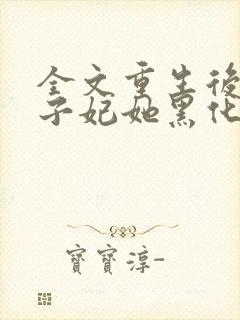 全文重生後
子妃她黑化
寶寶淳-